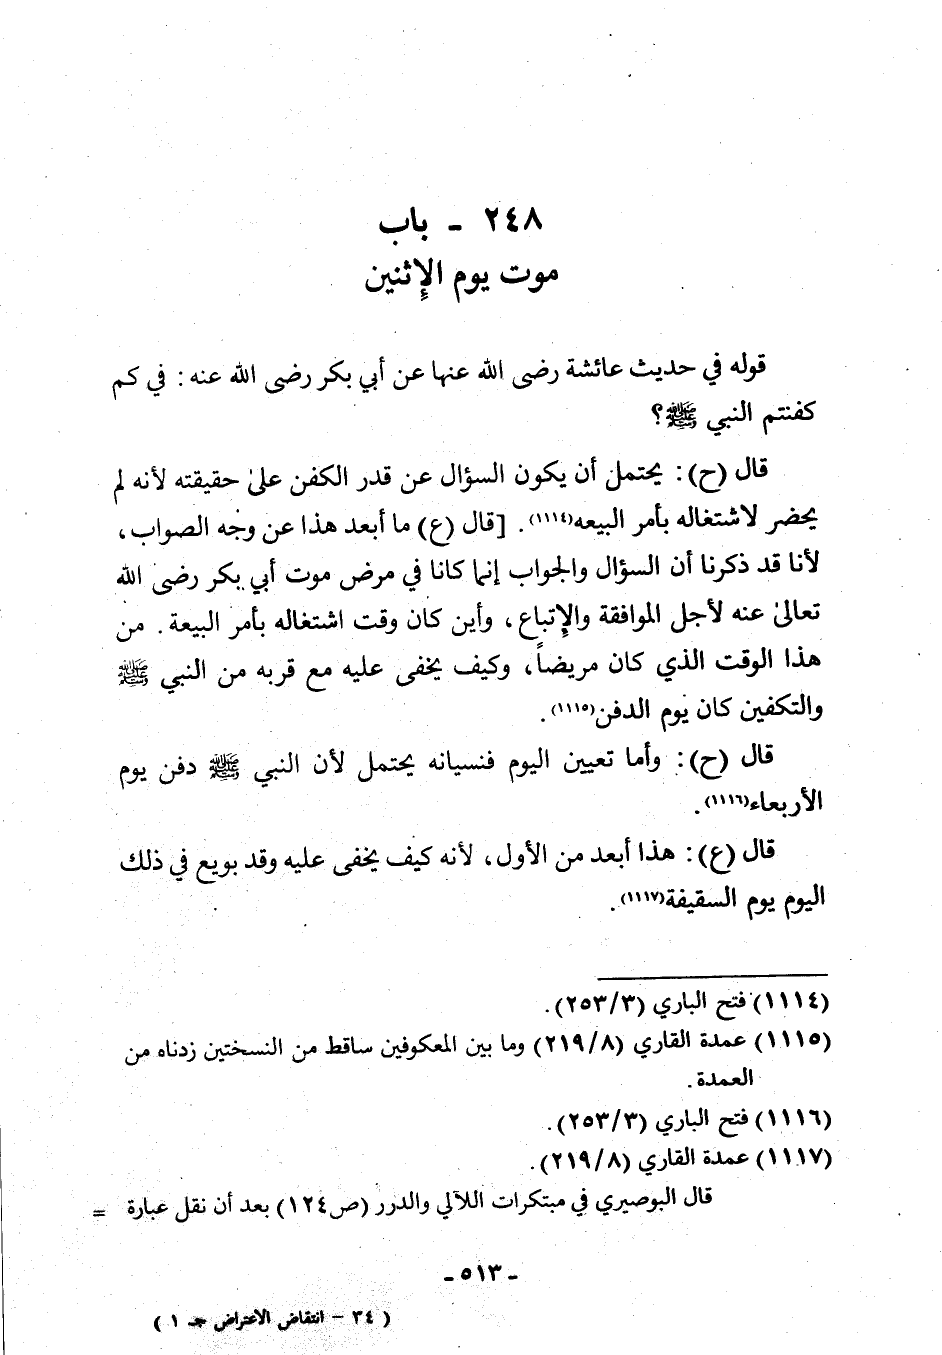 ٢٤٨ ـ باب
موت يوم الإثنين
قوله في حديث عائشة رضى الله عنها عن أبي بكر رضى الله عنه : في كم
كفنتم النبي ﷺ؟
قال (ح): يحتمل أن يكون السؤال عن قدر الكفن علىٰ حقيقته لأنه لم
يحضر لاشتغاله بأمر البيعه(١١١٤). [قال (ع) ما أبعد هذا عن وجه الصواب،
لأنا قد ذكرنا أن السؤال والجواب إنما كانا في مرض موت أبي بكر رضى الله
تعالىٰ عنه لأجل الموافقة والإتباع، وأين كان وقت اشتغاله بأمر البيعة. من
هذا الوقت الذي كان مريضاً، وكيف يخفى عليه مع قربه من النبي ﷺ
والتكفين كان يوم الدفن(١١١٥).
قال (ح): وأما تعيين اليوم فنسيانه يحتمل لأن النبي ﷺ دفن يوم
الأربعاء(١١١٦).
قال (ع): هذا أبعد من الأول، لأنه كيف يخفى عليه وقد بويع في ذلك
اليوم يوم السقيفة(١١١٧).
(١١١٤) فتح الباري (٢٥٣/٣).
(١١١٥) عمدة القاري (٢١٩/٨) وما بين المعكوفين ساقط من النسختين زدناه من
العمدة.
(١١١٦) فتح الباري (٢٥٣/٣).
(١١١٧) عمدة القاري (٢١٩/٨).
قال البوصيري في مبتكرات اللآلي والدرر (ص١٢٤) بعد أن نقل عبارة =
ـ ٥١٣ ـ
( ٣٤ – انتقاض الاعتراض جـ ١ )